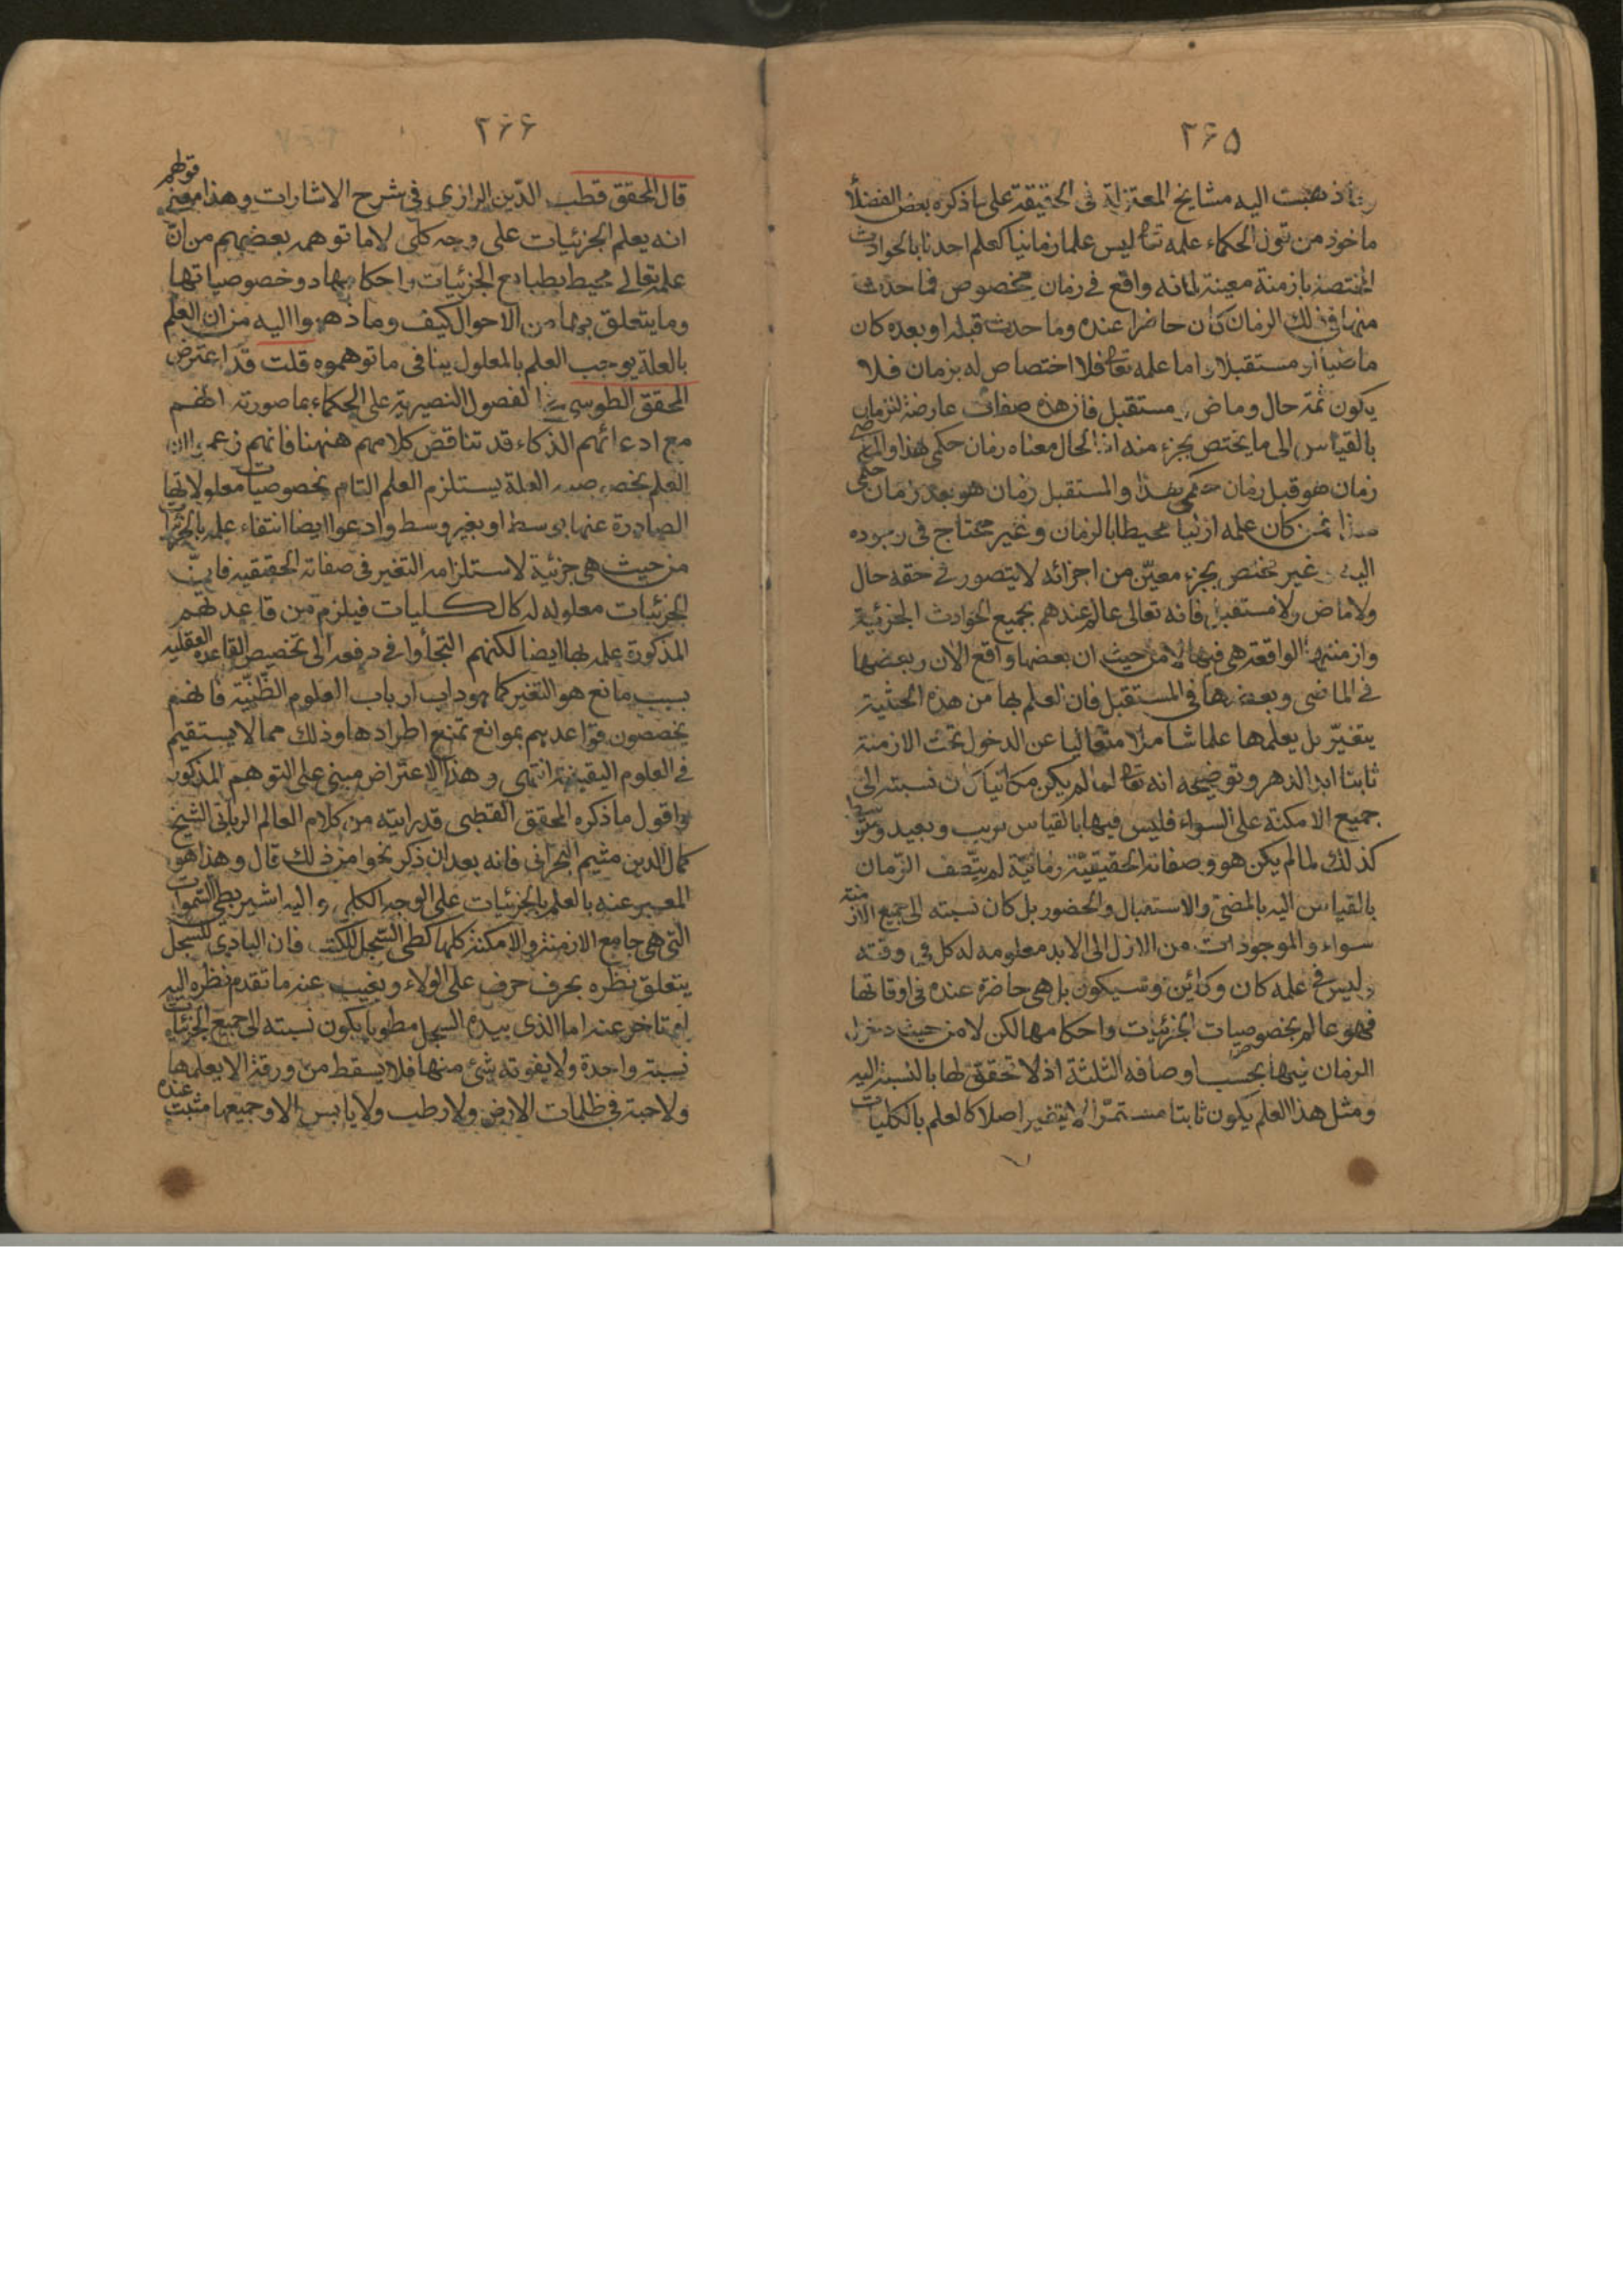 ٢۶۵
ذهبت اليه مشايخ المعتزلة فى الحقيقة على ما ذكره بعض الفضلاء
ماخوذ من قول الحكماء علمه تعا ليس علما زمانيا كعلم احدنا بالحوادث
المختصة بازمنة معينة لانه واقع فى زمان مخصوص فما حدث
منها فى ذلك الزمان كان حاضرا عنده وما حدث قبله او بعده كان
ماضيا او مستقبلا واما علمه تعا فلا اختصاص له بزمان فلا
يكون ثمة حال وماض ومستقبل فان هذه صفات عارضة للزمان
بالقياس الى ما يختص بجزء منه اذ الحال معناه زمان حكمى هذا والماضى
زمان هو قبل زمان حكمى هذا والمستقبل زمان هو بعد زمان حكمى
هذا فمن كان علمه ازليا محيطا بالزمان وغير محتاج فى وجوده
اليه غير مختص بجزء معيّن من اجزائه لا يتصور فى حقه حال
ولا ماض ولا مستقبل فانه تعالى عالم عندهم بجميع الحوادث الجزئية
وازمنتها الواقعة هى فيها لا من حيث ان بعضها واقع الان وبعضها
فى الماضى وبعضها فى المستقبل فان العلم بها من هذه الحثية
يتغيّر بل يعلمها علما شاملا متعاليا عن الدخول تحت الازمنة
ثابتا ابد الدهر وتوضيحه انه تعا لما لم يكن مكانيا كان نسبته الى
جميع الامكنة على السواء فليس فيها بالقياس قريب وبعيد ومتوسط
كذلك لما لم يكن هو وصفاته الحقيقيّة زمانيّة لم يتّصف الزّمان
بالقياس اليه بالمضىّ والاستقبال والحضور بل كان نسبته الى جميع الازمنة
سواء والموجودات من الازل الى الابد معلومه له كل فى وقته
وليس فى علمه كان وكائن وسيكون بل هى حاضرة عنده فى اوقاتها
فهو عالم بخصوصيات الجزئيات واحكامها لكن لا من حيث دخول
الزمان فيها بحسب اوصافه الثلثة اذ لا تحقق لها بالنسبة اليه
ومثل هذا العلم يكون ثابتا مستمرّا لا يتغير اصلا كالعلم بالكليات
٢۶۶
قال المحقق قطب الدّين الرازى فى شرح الاشارات وهذا معنى قولهم
انه يعلم الجزئيات على وجه كلّى لا ما توهمه بعضهم من انّ
علمه تعالى محيط بطبايع الجزئيات واحكامها دو خصوصياتها
وما يتعلق بها من الاحوال كيف وما ذهبوا اليه من ان العلم
بالعلة يوجب العلم بالمعلول ينافى ما توهموه قلت قد اعترض
المحقق الطوسى فى الفصول النصيرية على الحكماء بما صورته انهم
مع ادعائهم الذكاء قد تناقض كلامهم ههنا فانهم زعموا ان
العلم بخصوصية العلة يستلزم العلم التام بخصوصيات معلولاتها
الصادرة عنها بوسط او بغير وسط وادعوا ايضا انتفاء علمه بالجزئيات
من حيث هى جزئية لاستلزامه التغير فى صفاته الحقيقيه فان
الجزئيات معلوله له كالكليات فيلزم من قاعدتهم
المذكورة علمه بها ايضا لكنهم التجأوا فى دفعه الى تخصيص القاعده العقليه
بسبب مانع هو التغير كما هو داب ارباب العلوم الظّنّيّة فانهم
يخصصون قواعدهم بموانع تمنع اطرادها وذلك مما لا يستقيم
فى العلوم اليقينية انتهى وهذا الاعتراض مبنى على التوهم المذكور
واقول ما ذكره المحقق القطبى قد رايته من كلام العالم الربانى الشيخ
كمال الدين مثيم البحرانى فانه بعد ان ذكر نحوا من ذلك قال وهذا هو
المعبر عنه بالعلم بالجزئيات على الوجه الكلى واليه اشير بطى السموات
التى هى جامع الازمنة والامكنة كلها كطى السّجل للكتب فان القارى للسجل
يتعلق نظره بحرف حرف على الولاء ويغيب عنه ما تقدم نظره اليه
او تاخر عنه اما الذى بيده السجل مطويا يكون نسبته الى جميع الجزئيات
نسبة واحدة ولا يفوته شئ منها فلا يسقط من ورقة الا يعلمها
ولا حبة فى ظلمات الارض ولا رطب ولا يابس الا وجميعها مثبت عنده